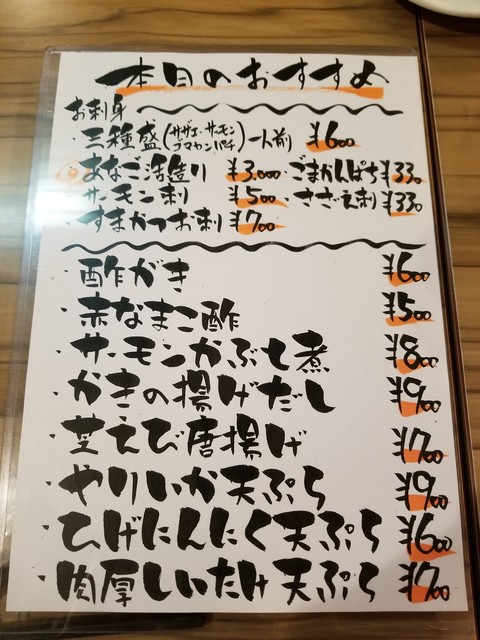 本日のおすすめ
お刺身
・三種盛(サザエ・サーモン ゴマカンパチ)一人前 ¥600
・あなご活造り ¥3,000 ・ごまかんぱち ¥330
・サーモン刺 ¥500 ・さざえ刺 ¥330
・すまかつお刺 ¥700
・酢がき ¥600
・赤なまこ酢 ¥500
・サーモンかぶと煮 ¥800
・かきの揚げだし ¥900
・芝えび唐揚げ ¥700
・やりいか天ぷら ¥900
・ひげにんにく天ぷら ¥600
・肉厚しいたけ天ぷら ¥700